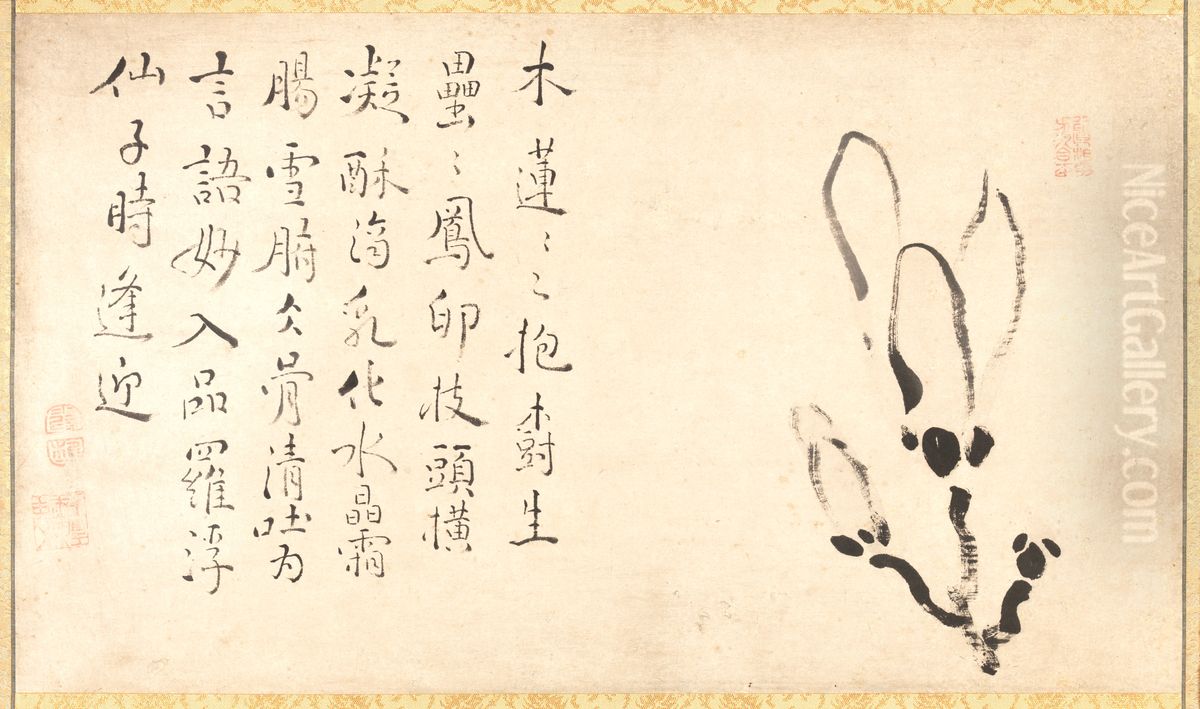 木蓮〻〻抱樹生
壘〻鳳卵枝頭橫
凝酥滴乳化水晶霜
腸雪腑久骨清吐为
言語妙入品羅浮
仙子時逢迎
NiceArtGallery.com